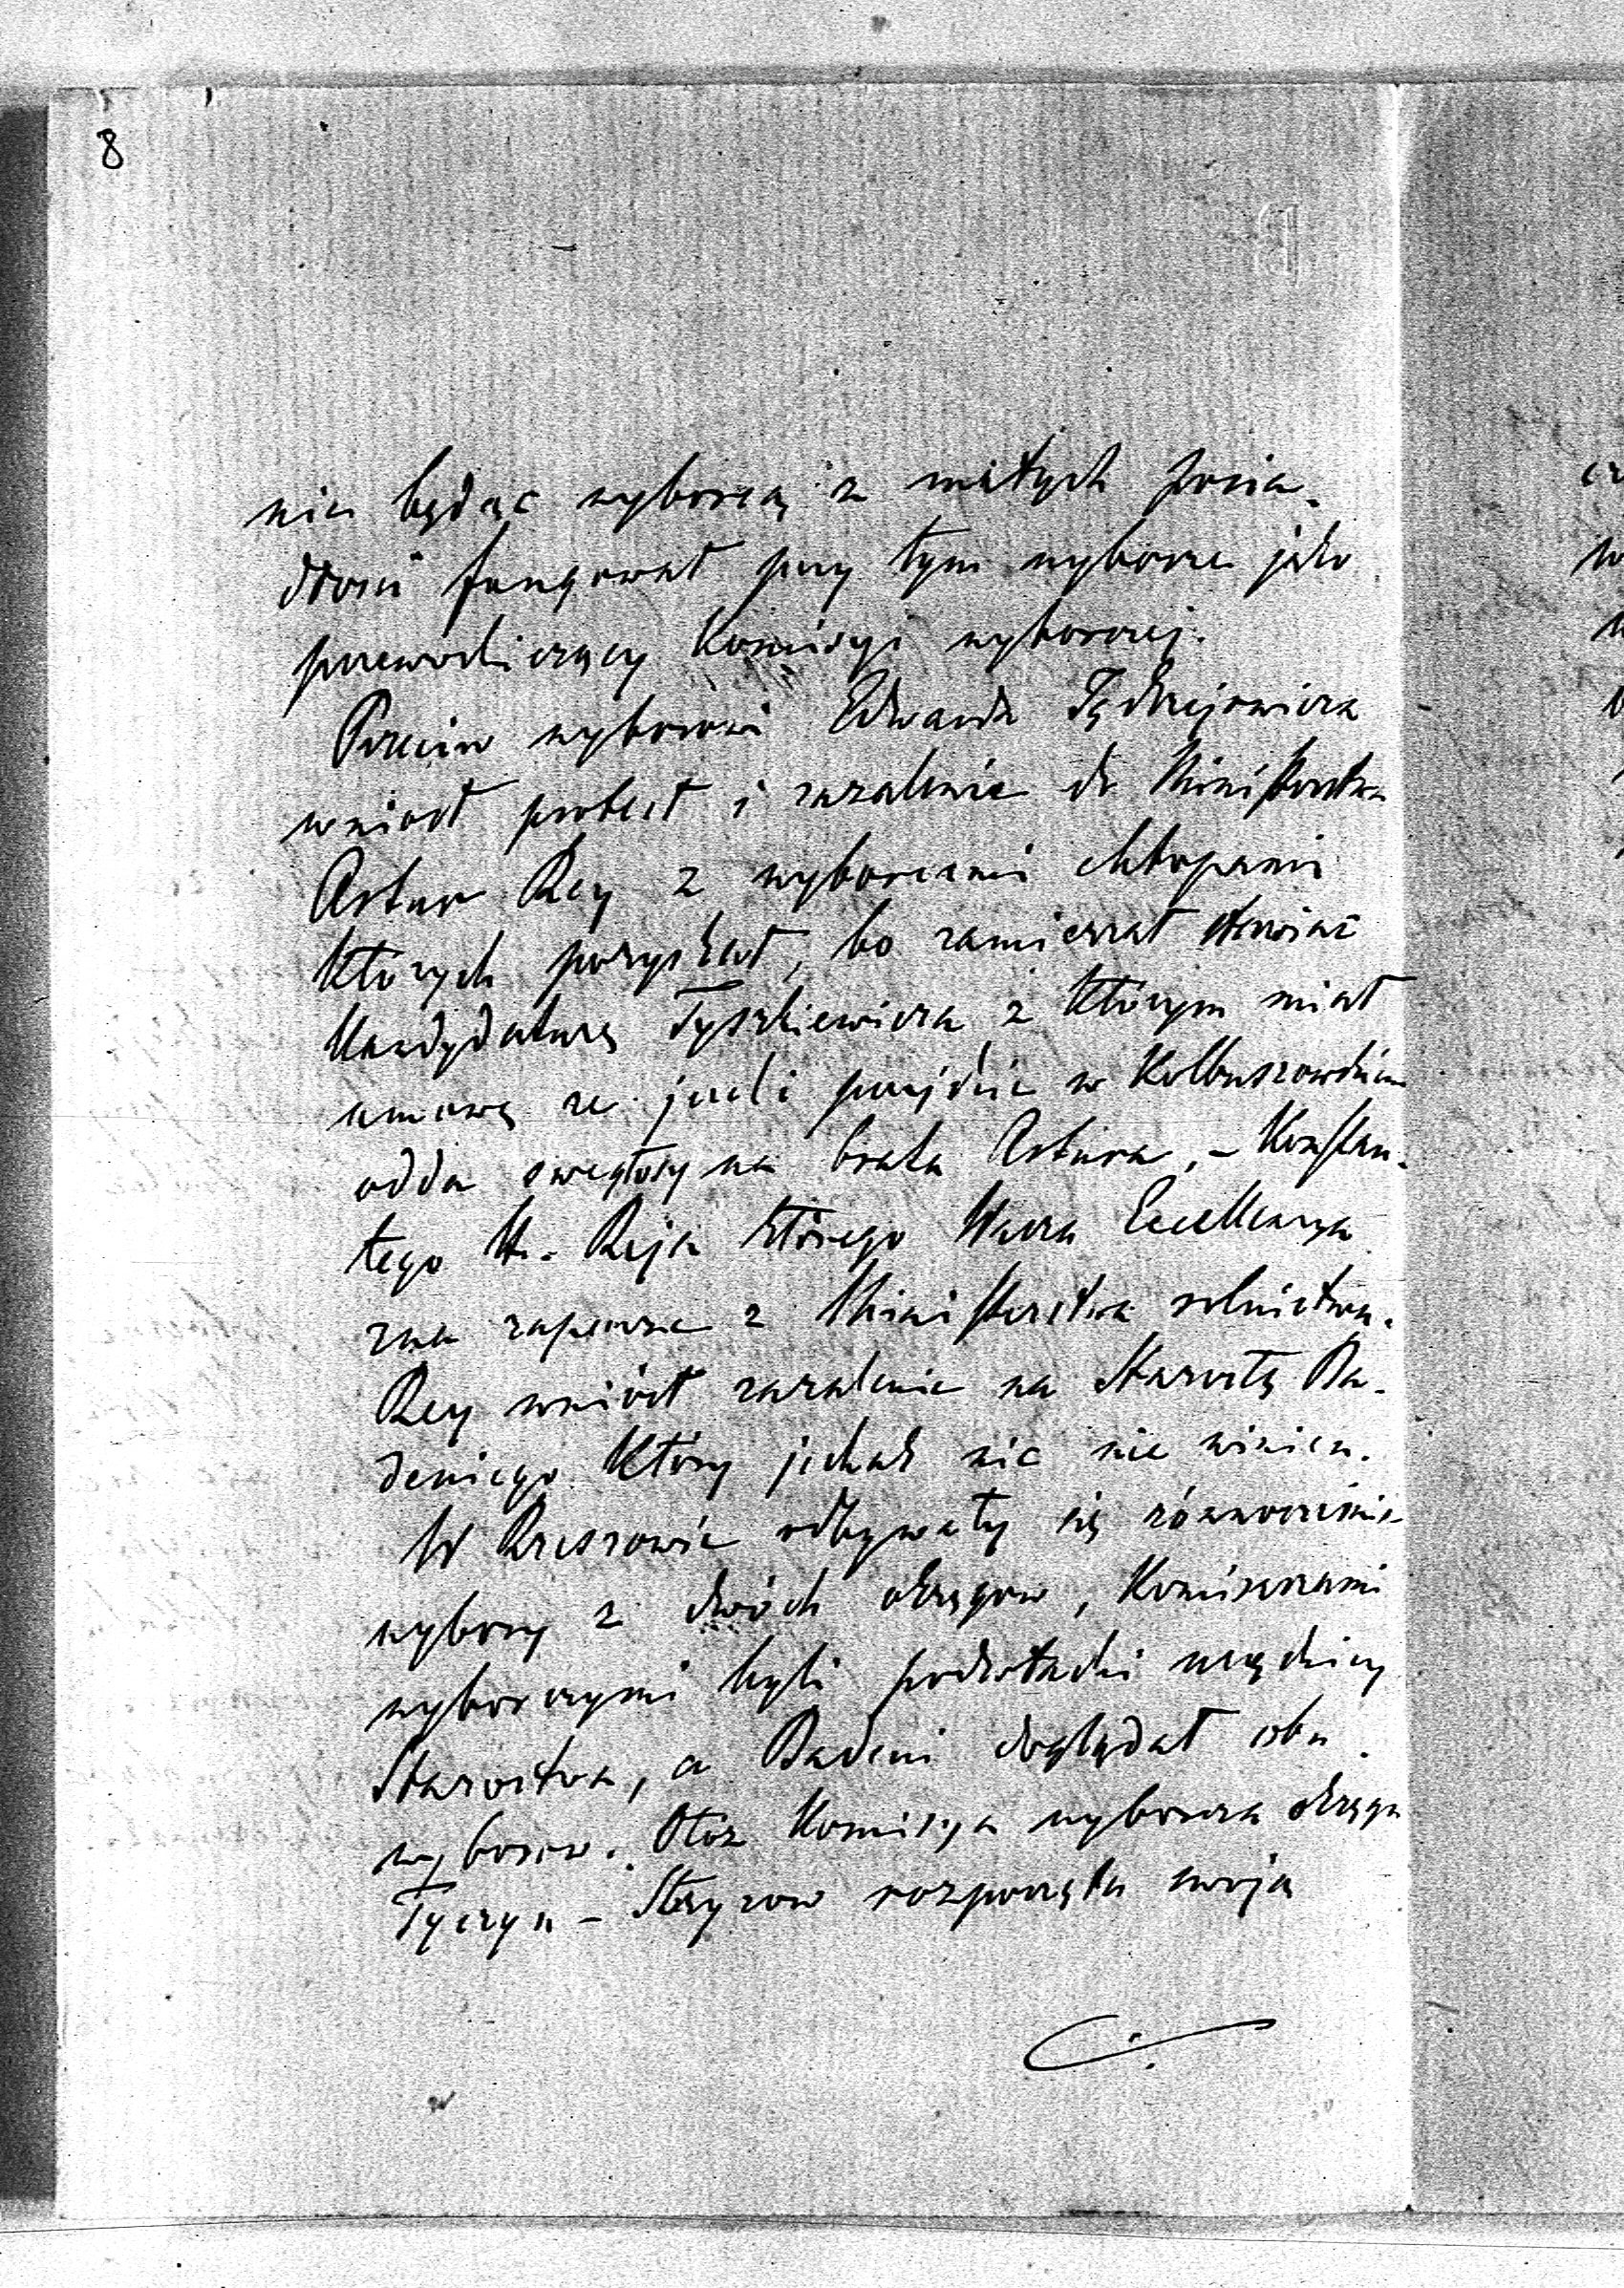 8
nie będąc wyborcą z małych posia-
dłości fungował przy tym wyborze jako
przewodniczący Komisyi wyborczej.
Przeciw wyborowi Edwarda Jędrzejowicza
wniósł protest i zażalenie do Ministerstwa
Artur Rey z wyborcami chłopami
których pozyskał, bo zamierzał stawiać
Kandydaturę Tyszkiewicza z którym miał
umowę że jeżeli przejdzie w Kolbuszowskim
odda swe głosy na brata Artura, - Konstan-
tego H. Reja którego Wasza Excellencya
zna zapewne z Ministerstwa rolnictwa.
Rey wniósł zażalenie na Starostę Ba-
deniego który jednak nic nie winien.
W Rzeszowie odbywały się równocześnie
wybory z dwóch okręgów, Komisarzami
wyborczymi byli podwładni urzędnicy
Starostwa, a Badeni doglądał obu
wyborów. Otóż Komisya wyborcza okręgu
Tyczyn - Strzyżow rozpoczęła swoją